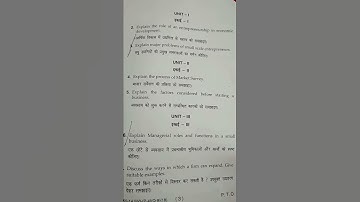 UNIT – I
इकाई – I
2. Explain the role of an entrepreneurship in economic
development.
आर्थिक विकास में उद्यमिता के महत्व को समझाइए।
3. Explain major problems of small scale entrepreneurs.
लघु उद्यमियों की प्रमुख समस्याओं का वर्णन कीजिए।
UNIT – II
इकाई – II
4. Explain the process of Market Survey.
बाजार सर्वेक्षण की प्रक्रिया को समझाइए।
5. Explain the factors considered before starting a
business.
व्यवसाय को शुरू करने से पहले कारकों को समझाइए।
UNIT – III
इकाई – III
6. Explain Managerial roles and functions in a small
business.
एक छोटे से व्यवसाय में प्रबन्धकीय भूमिकाओं और कार्यों को स्पष्ट
कीजिए।
Discuss the ways in which a firm can expand. Give
suitable examples.
एक फर्म किन तरीकों में विस्तार कर सकती है ? उपयुक्त उदाहरण
देकर समझाइए।
(3)
P.T.O.